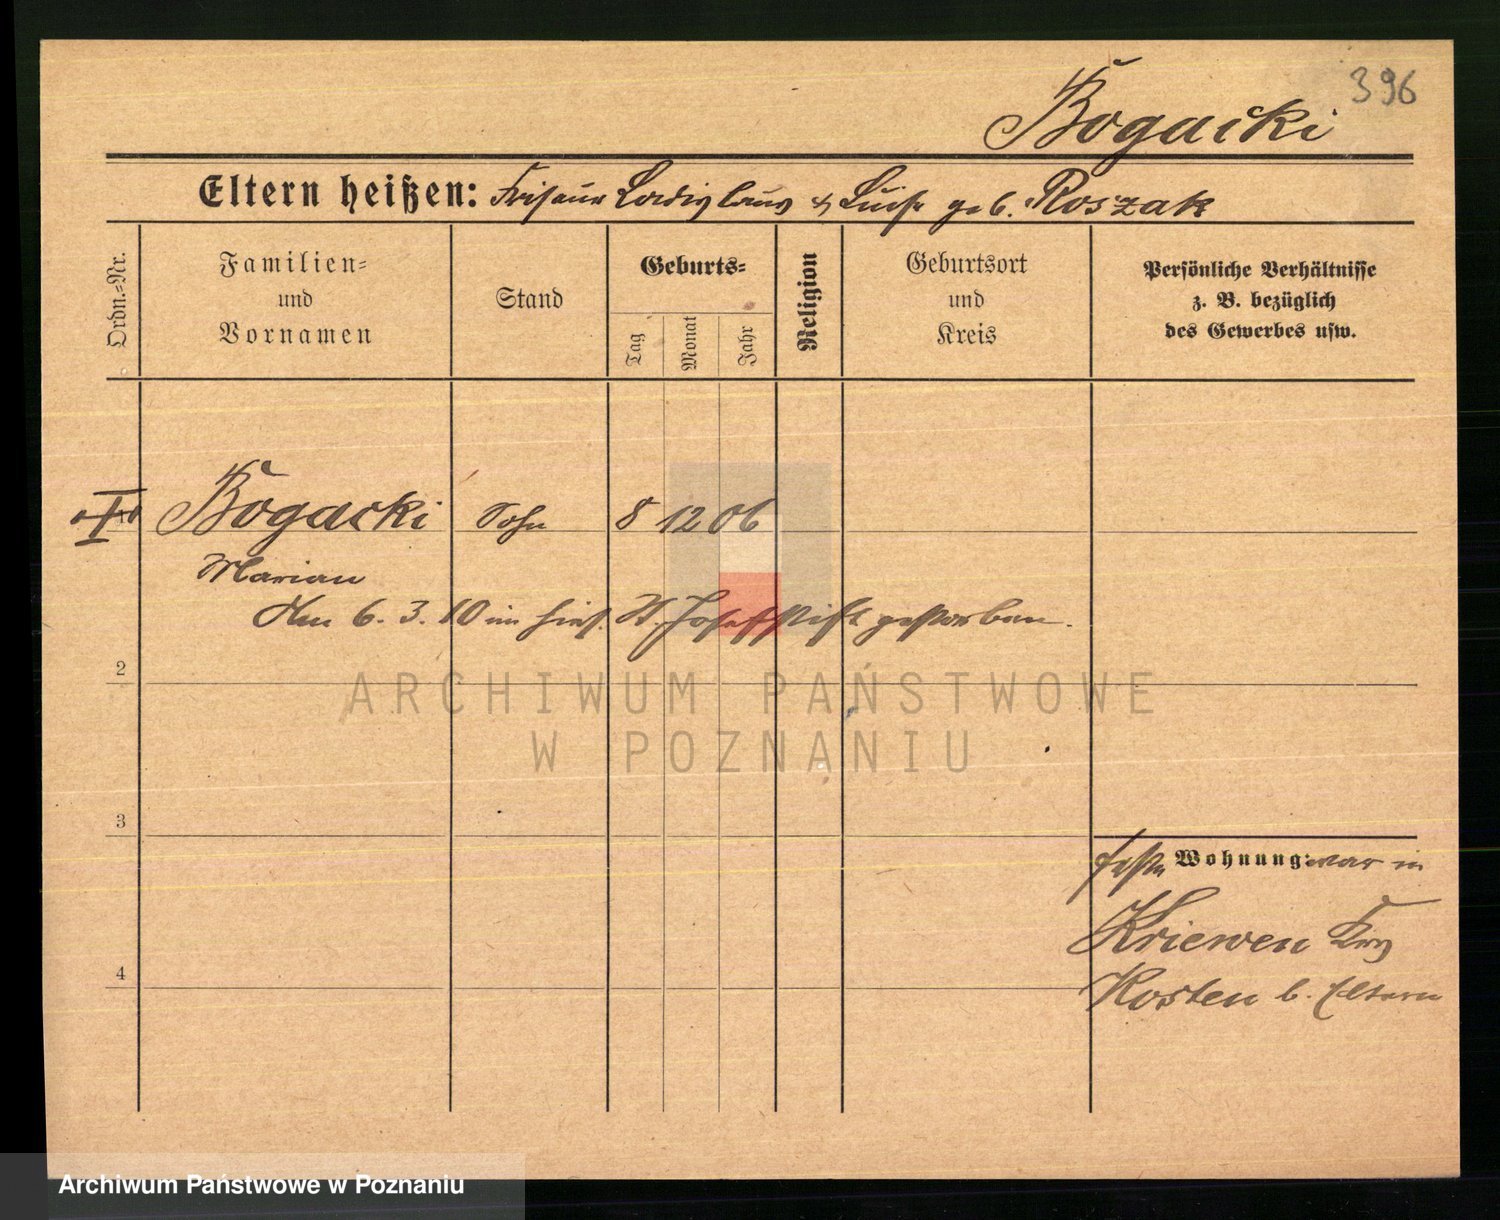 396
Bogacki
Eltern heißen: Friseur Ladislaus & Luise geb. Roszak
Ordn.-Nr.
Familien- und Vornamen
Stand
Geburts-
Tag
Monat
Jahr
Religion
Geburtsort und Kreis
Persönliche Verhältnisse z. B. bezüglich des Gewerbes usw.
1 Bogacki Sohn 8 12 06
Marian
Am 6. 3. 10 im hies. St. Josefstift gestorben.
2
3
4
feste Wohnung: war in
Kriewen Krs
Kosten b. Eltern
ARCHIWUM PAŃSTWOWE
W POZNANIU
Archiwum Państwowe w Poznaniu